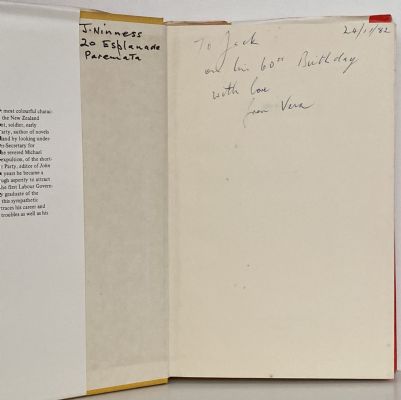 J. Ninness
20 Esplanade
Paremata
24/11/82
To Jack
on his 60th Birthday
with love
from Vera
most colourful charac-
the New Zealand
soldier, early
arty, author of novels
and by looking under-
Secretary for
he severed Michael
expulsion, of the short-
Party, editor of John
years he became a
ough asperity to attract
the first Labour Govern-
graduate of the
this sympathetic
traces his career and
troubles as well as his